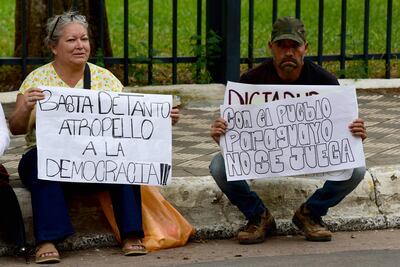 BASTA DE TANTO
ATROPELLO
A LA
DEMOCRACIA!!!
DICTADUR
CON EL PUEBLO
PARAGUAYO
NO SE JUEGA